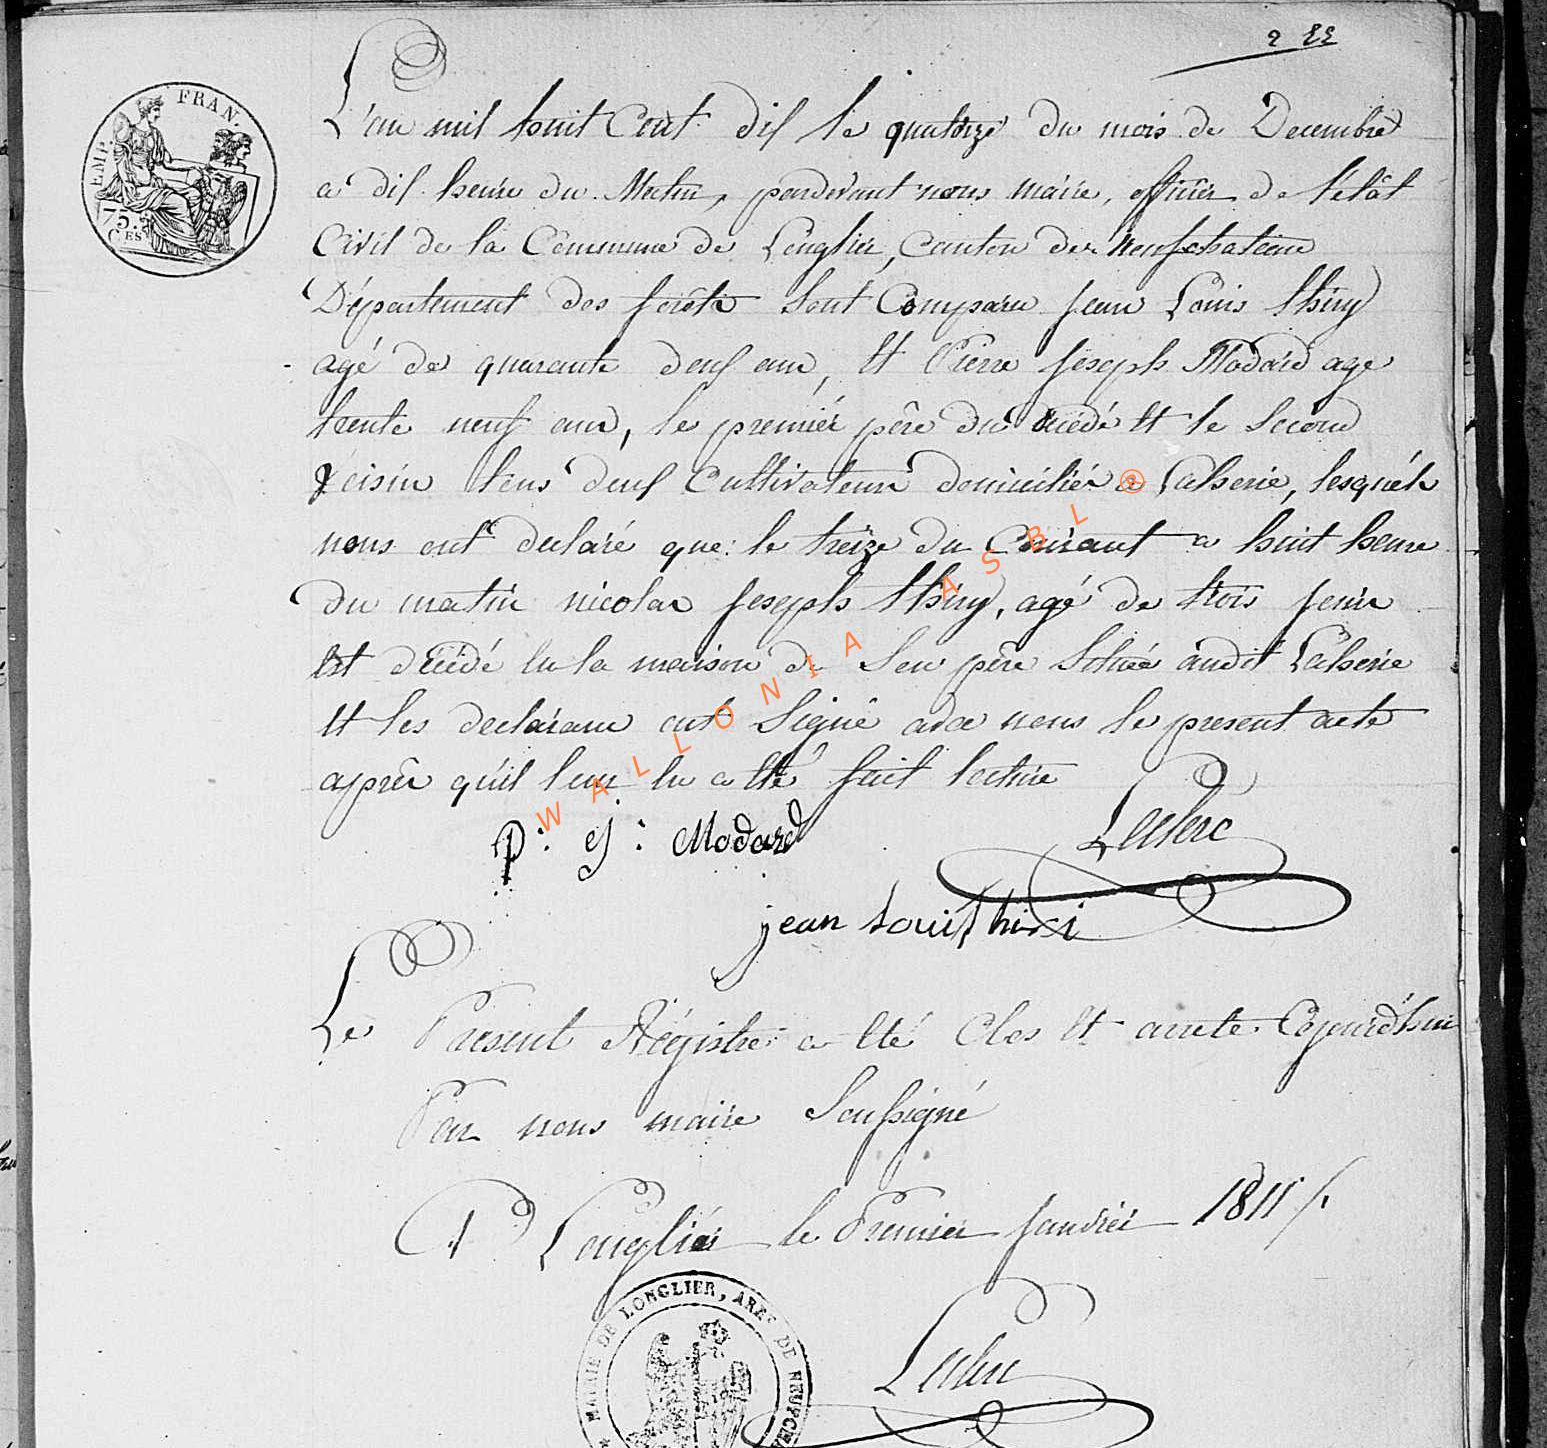 FRAN.
EMP.
75.
CES
L'an mil huit Cent dix le quatorze du mois de Decembre
a dix heure du Matin, pardevant nous maire, officier de l'état
Civil de la Commune de Longlier, Canton de Neufchateau
Département des forêts sont Comparu jean Louis thiry
agé de quarante deux ans, et Pierre joseph Modard age
trente neuf ans, le premiér pêre du décédé et le second
Voisin tous deux Cultivateurs domiciliés a Laherie, lesquéls
nous ont declaré que le treize du Courant a huit heure
du matin nicolas joseph thiry, agé de trois jours
est décédé en la maison de son pêre située audit Laherie
et les declarans ont signé avec nous le present acte
aprês qu'il leur en a été fait lecture
P: J: Modard
Leclerc
jean Louis thiri
Le Present Régistre a été Clos et arrete Cejourd'hui
Par nous maire soussigné
A Longliér le Premier janvier 1811
MAIRIE DE LONGLIER, ARRt DE NEUFCHA
Leclerc
WALLONIA ASBL ®